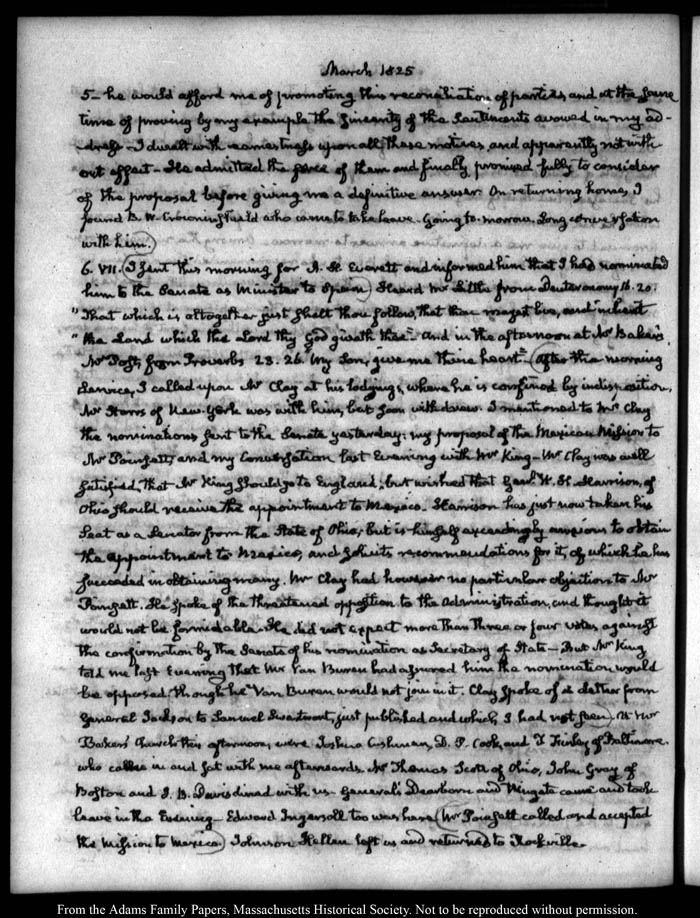 March 1825
5– he would afford me of promoting this reconciliation of parties, and at the same
time of proving by my example the sincerity of the sentiments avowed in my ad-
dress – I dwelt with earnestness upon all these motives, and apparently not with
out effect – He admitted the force of them and finally promised fully to consider
of the proposal before giving me a definitive answer. On returning home, I
found B. W. Crowninshield who came to take leave. Going to-morrow. Long conversation
with him.)
6. VII. (I sent this morning for A. H. Everett and informed him that I had nominated
him to the Senate as Minister to Spain) Heard Mr Little from Deuteronomy 16. 20.
"That which is altogether just shalt thou follow, that thou mayest live, and inherit
"the Land which the Lord thy God giveth thee" – And in the afternoon at Mr Baker's
Mr Post, from Proverbs 23. 26. My Son, give me thine heart" – (After the morning
Service, I called upon Mr Clay at his lodgings, where he is confined by indisposition.
Mr Storrs of New-York was with him, but soon withdrew. I mentioned to Mr Clay
the nominations sent to the Senate yesterday: my proposal of the Mexican Mission to
Mr Poinsett, and my Conversation last Evening with Mr King – Mr Clay was well
satisfied, that Mr King should go to England; but wished that Genl. W. H. Harrison, of
Ohio should receive the appointment to Mexico. Harrison has just now taken his
Seat as a Senator from the State of Ohio, but is himself exceedingly anxious to obtain
the appointment to Mexico, and solicits recommendations for it, of which he has
succeeded in obtaining many. Mr Clay had however no particular objection to Mr
Poinsett. He spoke of the threatened opposition to the Administration, and thought it
would not be formidable – He did not expect more than three or four votes against
the confirmation by the Senate of his nomination as Secretary of State – But Mr King
told me last Evening that Mr Van Buren had assured him the nomination would
be opposed, though he Van Buren would not join in it. Clay spoke of a letter from
General Jackson to Samuel Swartwout, just published and which I had not seen). At Mr
Baker's Church this afternoon, were Joshua Cushman, D. P. Cook, and F Finley of Baltimore.
who called in and sat with me afterwards. Mr Thomas Scott of Ohio, John Gray of
Boston and J. B. Davis dined with us – Generals Dearborn and Wingate came and took
leave in the Evening – Edward Ingersoll too was here (Mr Poinsett called and accepted
the Mission to Mexico.) Johnson Hellen left us and returned to Rockville.
From the Adams Family Papers, Massachusetts Historical Society. Not to be reproduced without permission.